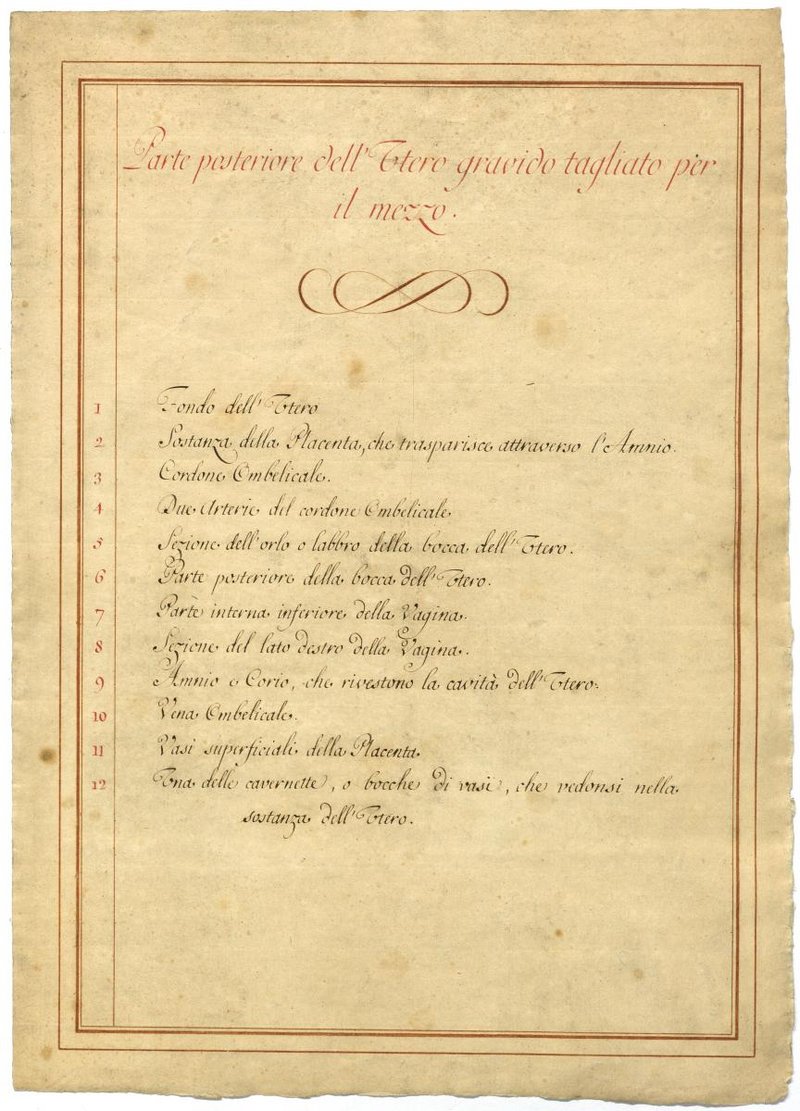 Parte posteriore dell' Utero gravido tagliato per
il mezzo.
1 Fondo dell' Utero
2 Sostanza della Placenta, che trasparisce attraverso l'Amnio.
3 Cordone Ombelicale.
4 Due Arterie del cordone Ombelicale
5 Sezione dell'orlo o labbro della bocca dell' Utero.
6 Parte posteriore della bocca dell' Utero.
7 Parte interna inferiore della Vagina.
8 Sezione del lato destro della Vagina.
9 Amnio e Corio, che rivestono la cavità dell' Utero.
10 Vena Ombelicale.
11 Vasi superficiali della Placenta
12 Una delle cavernette, o bocche di vasi, che vedonsi nella
sostanza dell' Utero.